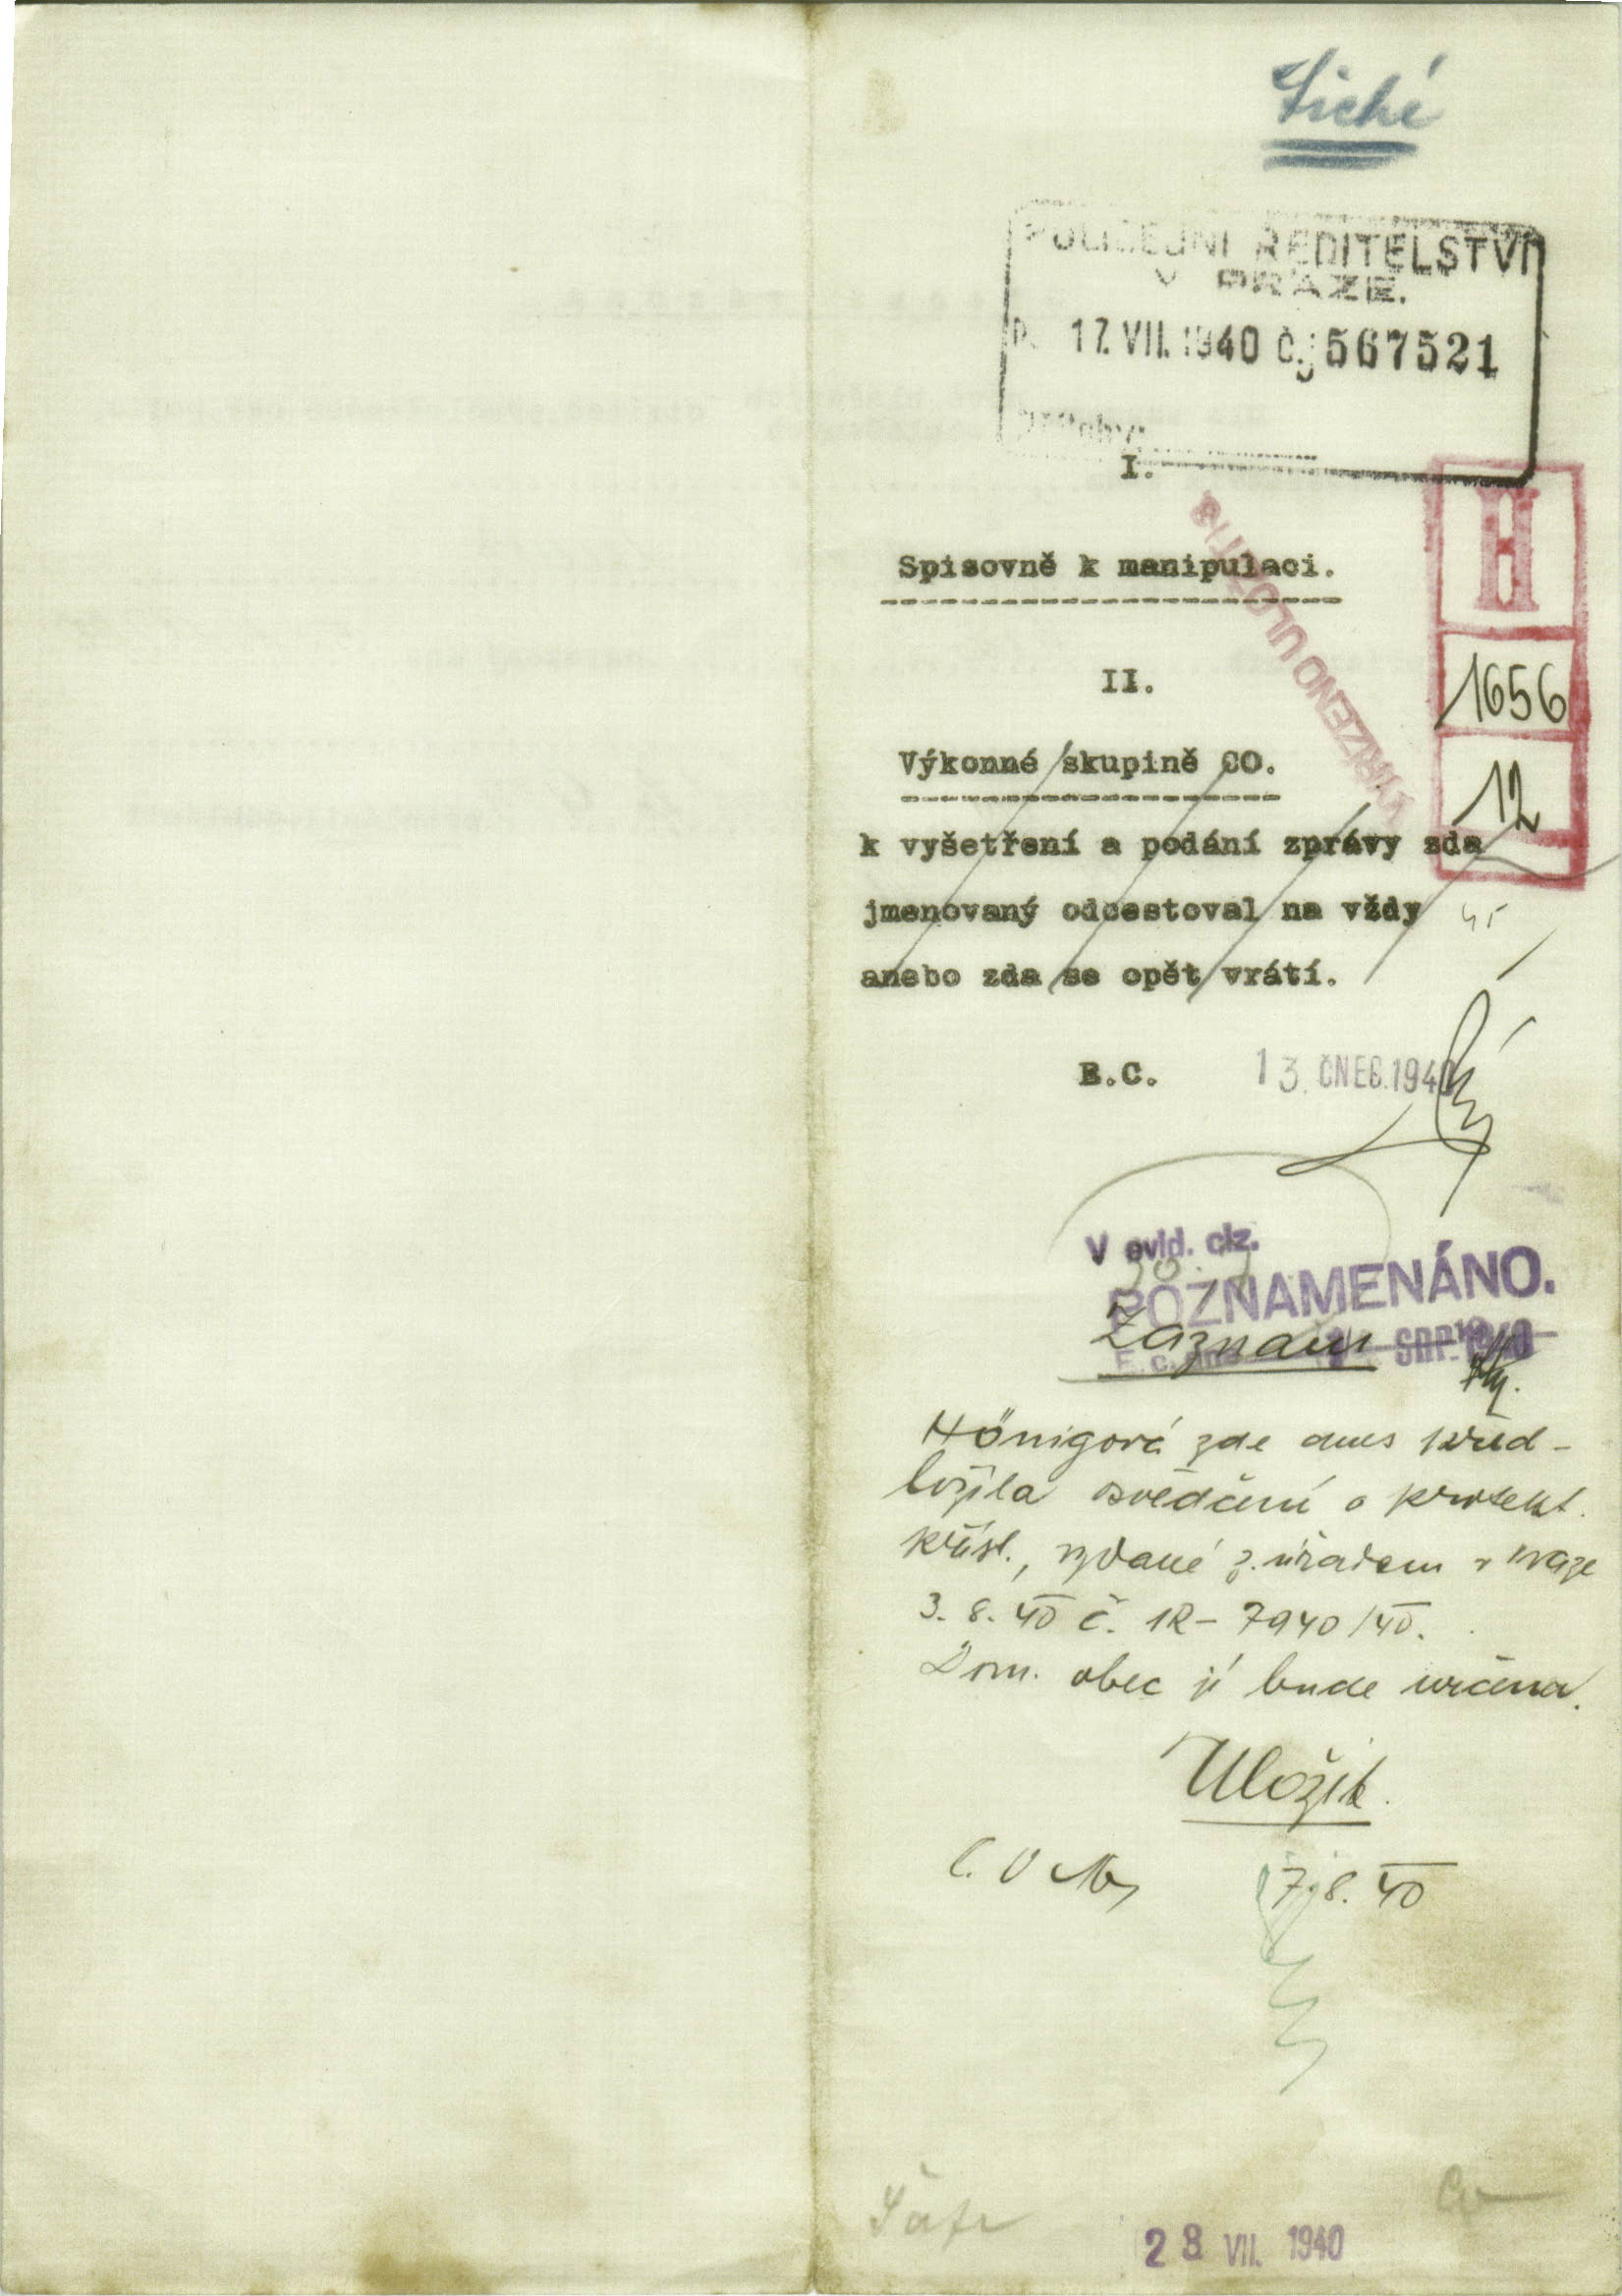 POLICEJNÍ ŘEDITELSTVÍ
V PRAZE.
17. VII. 1940 Č.j. 567521
I.
H
1656
12
Spisovně k manipulaci.
VYŘÍZENO ULOŽITI
II.
Výkonné skupině CO.
k vyšetření a podání zprávy zda
jmenovaný odcestoval na vždy
anebo zda se opět vrátí.
B.C. 13. ČNEC.1940
V evid. ciz.
POZNAMENÁNO.
SRP. 1940
Záznam
Hönigová zde dnes před-
ložila osvědčení o protekt.
přísl., vydané z. úřadem v Praze
3. 8. 40 č. 1R - 7940/40.
Dom. obec jí bude určena.
Uložit.
7. 8. 40
28 VII. 1940